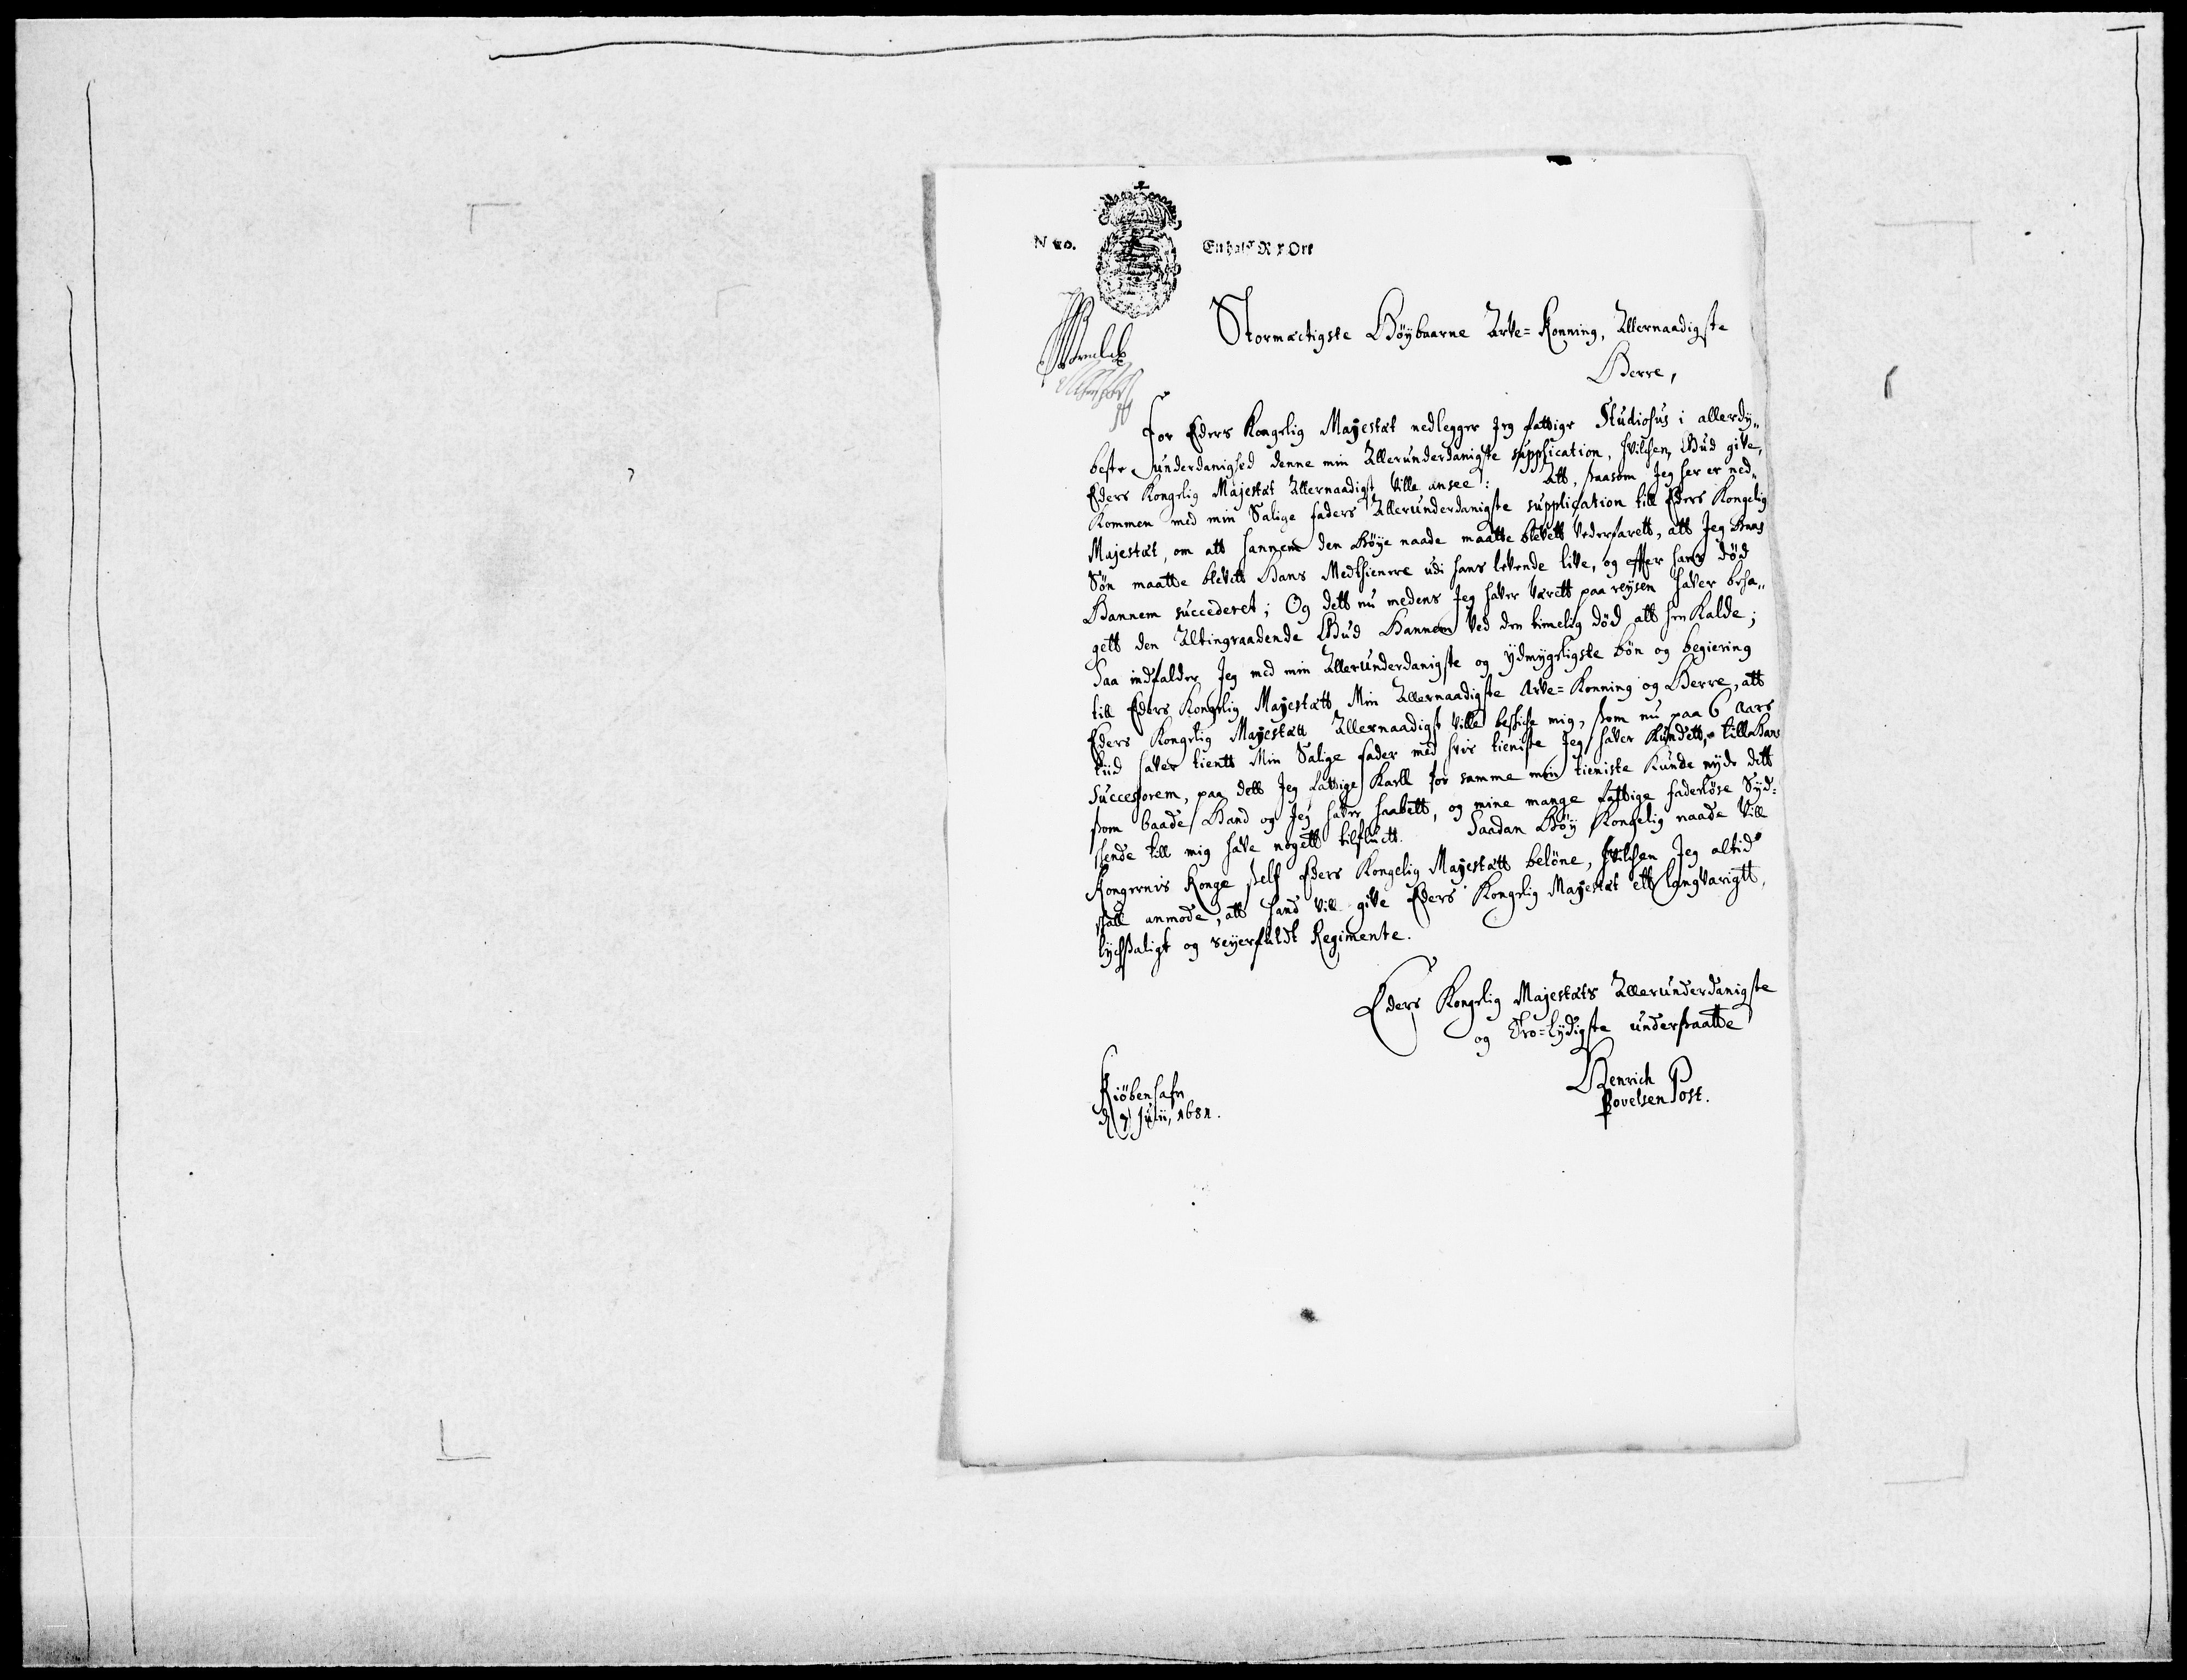 En halff Rx Ort
Stormæctigste Höybaarne Arve=Konning, Allernaadigste
Herre,
For Eders Kongelig Mayestæt nedlegger Jeg fattige Studiosus i allerdy„
beste underdanighed denne min Allerunderdanigste supplication, hvilchen, Gud give,
Eders Kongelig Majestæt Allernaadigst ville ansee: Att, saasom Jeg her er ned„
kommen med min Salige faders Allerunderdanigste supplication till Eders Kongelig
Majestæt, om att hannem den Höye naade maatte blevett vederfarett, att Jeg Hans
Sön maatte blevett Hans Medthienere udi hans levende live, og effter hans död
Hannem succederet; Og dett nu medens Jeg haver værett paa reysen haver beha„
gett den Altingraadende Gud Hannem ved den timelig död att hen kalde;
Saa indfalder Jeg med min Allerunderdanigste og ydmygeligste bön og begiering
till Eders Kongelig Mayestætt Min Allernaadigste Arve=Konning og Herre, att
Eders Kongelig Mayestætt Allernaadigst ville beskiche mig, som nu paa 6 Aars
tiid haver tientt Min Salige fader med hvis tieniste Jeg haver kundett, till Hans
Successorem, paa dett Jeg fattige Karll for samme min tieniste kunde nyde dett
som baade Hand og Jeg haver haabett, og mine mange fattige faderlöse Syd=
schende till mig have nogett tilfluctt. Saadan Höy Kongelig naade vill
Kongernis Konge self Eders Kongelig Mayestætt belöne, hvilchen Jeg altid
skall anmode, att hand vill give Eders Kongelig Mayestæt ett langvarigtt,
lychsaligt og seyerfuldt Regimente.
Eders Kongelig Majestæts Allerunderdanigste
og Tro=lydigste undersaatte
Kiöbenhafn
d 7 Julii, 1681.
Henrich
Povelsen Post.